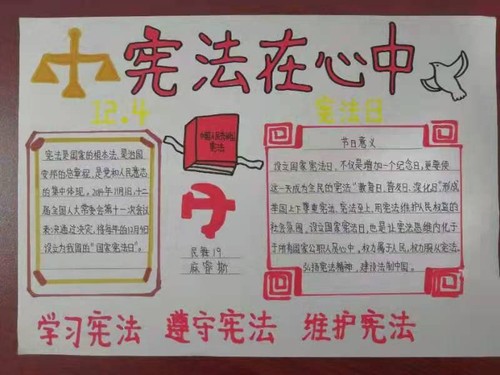 宪法在心中
12.4
宪法日
中国人民共和国
宪法
宪法是国家的根本法,是治国
安邦的总章程,是党和人民意志
的集中体现。2014年11月1日,十二
届全国人大常委会第十一次会议
表决通过决定,将每年的12月4日
设立为我国的“国家宪法日”。
节日意义
设立国家宪法日,不仅是增加一个纪念日,更要使
这一天成为全民的宪法“教育日、普及日、深化日”,形成
举国上下尊重宪法、宪法至上、用宪法维护人民权益的
社会氛围,设立国家宪法日,也是让宪法思维内化于
于所有国家公职人员心中,权力属于人民,权力服从宪法。
弘扬宪法精神,建设法制中国。
民舞19
麻睿斯
学习宪法 遵守宪法 维护宪法